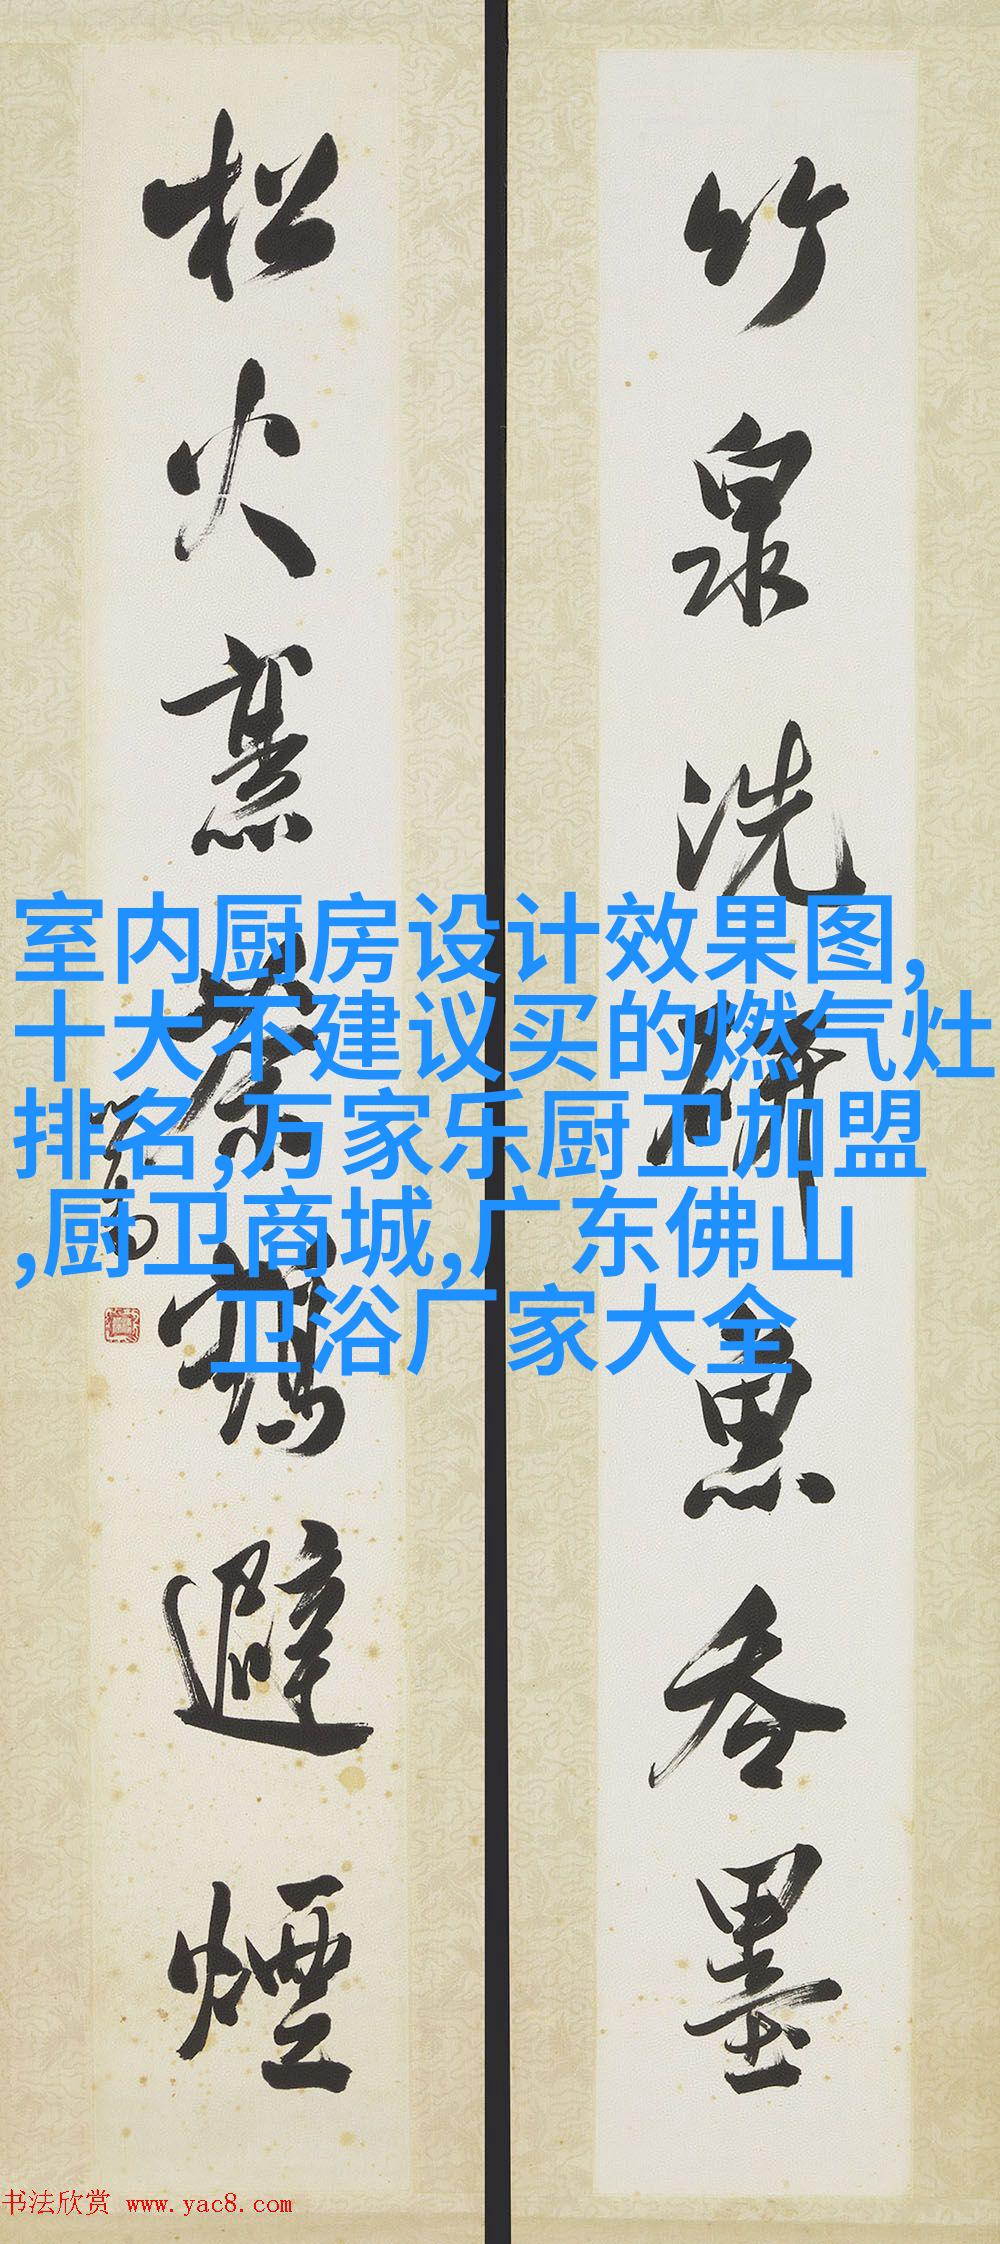 竹泉洗研魚吞墨
松火烹茶鶴避煙
室内厨房设计效果图,
十大不建议买的燃气灶
排名,万家乐厨卫加盟
,厨卫商城,广东佛山
卫浴厂家大全
书法欣赏 www.yac8.com